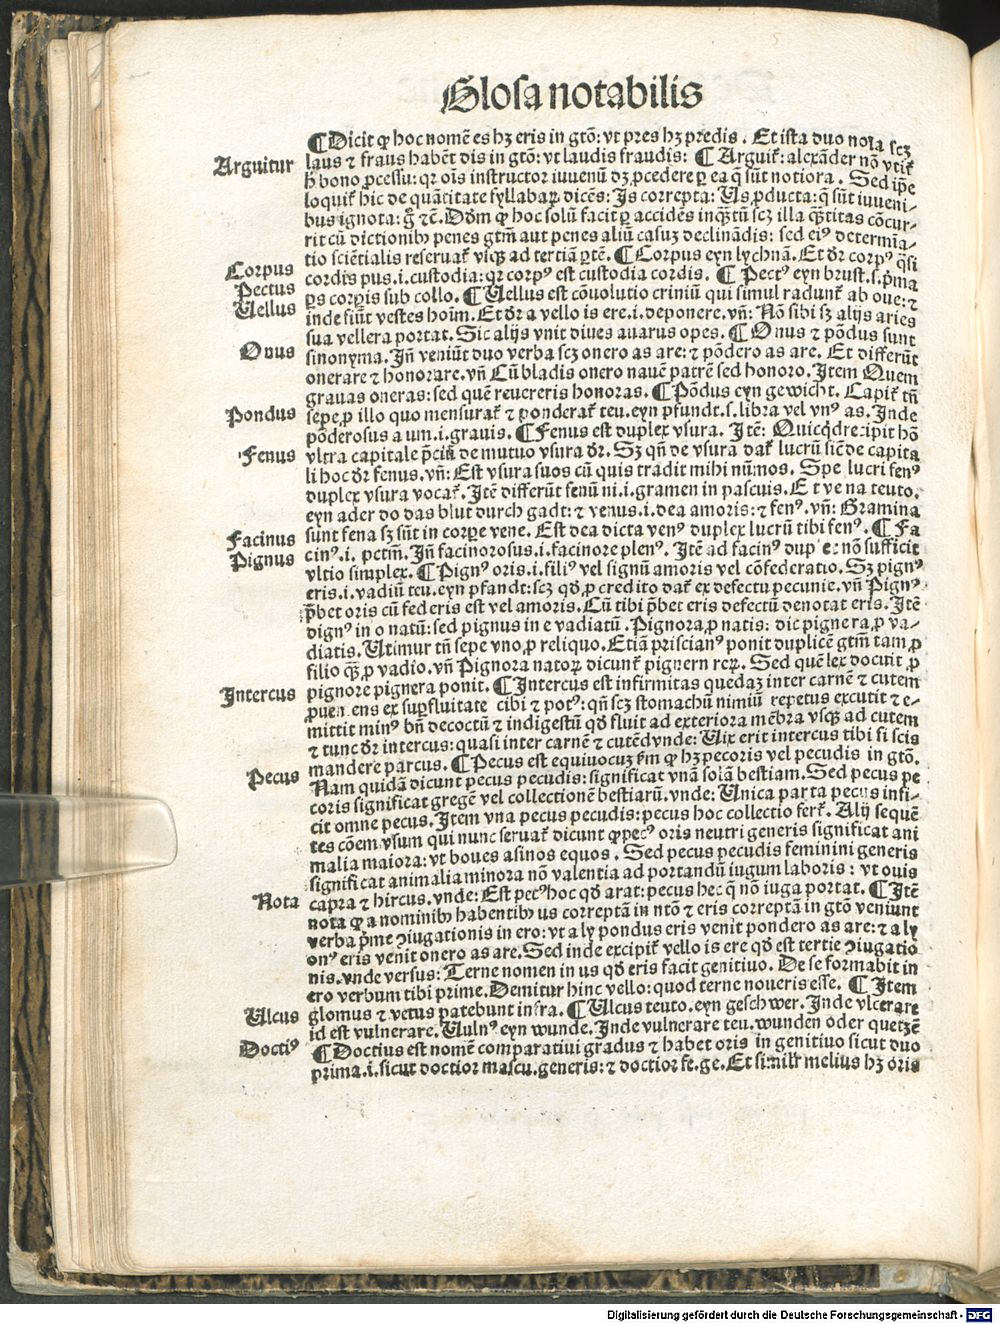 Glosa notabilis
¶ Dicit ꝙ hoc nomē es hꝫ eris in gtō: vt pres hꝫ predis. Et ista duo nola scꝫ
Arguitur
laus ⁊ fraus habēt dis in gtō: vt laudis fraudis: ¶ Arguit̄: alexāder nō vtit̄
h̄ bono ꝓcessu: qꝛ oīs instructor iuuenū dꝫ ꝓcedere ꝑ ea q̄ sūt notiora. Sed ip̄e
loquit̄ hic de quātitate syllabaꝝ dicēs: Is correpta: Us ꝓducta: q̄ sūt iuueni-
bus ignota: gͦ ⁊c̄. Dōm ꝙ hoc solū facit ꝑ accidēs inq̄ꝫtū scꝫ illa q̄ꝫtitas cōcur-
rit cū dictionibꝫ penes gtm̄ aut penes aliū casuꝫ declinādis: sed eiꝰ determīa-
tio sciētialis reseruat̄ vsqꝫ ad tertiā ꝑtē. ¶ Corpus eyn lychnā. Et dr̄ corpꝰ q̄si
Corpus
cordis pus .i. custodia: qꝛ corpꝰ est custodia cordis. ¶ Pectꝰ eyn brust .s. pͥma
Pectus
ꝑs corꝑis sub collo. ¶ Uellus est cōuolutio criniū qui simul radunt̄ ab oue: ⁊
Uellus
inde fiūt vestes hoīm. Et dr̄ a vello is ere .i. deponere. vn̄: Nō sibi sꝫ alijs aries
sua vellera portat. Sic alijs vnit diues auarus opes. ¶ Onus ⁊ pōdus sunt
Onus
sinonyma. In̄ veniūt duo verba scꝫ onero as are: ⁊ pōdero as are. Et differūt
onerare ⁊ honorare. vn̄ Cū bladis onero nauē patrē sed honoro. Item Quem
grauas oneras: sed quē reuereris honoras. ¶ Pōdus eyn gewicht. Capit̄ tn̄
Pondus
sepe ꝓ illo quo mensurat̄ ⁊ ponderat̄ teu. eyn pfundt .s. libra vel vnꝰ as. Inde
pōderosus a um .i. grauis. ¶ Fenus est duplex vsura. Itē: Quicqͥd recipit hō
Fenus
vltra capitale p̄cise de mutuo vsura dr̄. Sꝫ qn̄ de vsura dat̄ lucrū sicē de capita
li hoc dr̄ fenus. vn̄: Est vsura suos cū quis tradit mihi nūmos. Spe lucri fenꝰ
duplex vsura vocat̄. Itē differūt fenū ni .i. gramen in pascuis. Et ve na teuto.
eyn ader do das blut durch gadt: ⁊ venus .i. dea amoris: ⁊ fenꝰ. vn̄: Gramina
sunt fena sꝫ sūt in corꝑe vene. Est dea dicta venꝰ duplex lucrū tibi fenꝰ. ¶ Fa
Facinus
cinꝰ .i. pctm̄. In̄ facinorosus .i. facinore plenꝰ. Itē ad facinꝰ dup e: nō sufficit
Pignus
vltio simplex. ¶ Pignꝰ oris .i. filiꝰ vel signū amoris vel cōfederatio. Sꝫ pignꝰ
eris .i. vadiū teu. eyn pfandt: scꝫ qd̄ ꝓ credito dat̄ ex defectu pecunie. vn̄ Pignꝰ
p̄bet oris cū fed eris est vel amoris. Cū tibi p̄bet eris defectū denotat eris. Itē
dignꝰ in o natū: sed pignus in e vadiatū. Pignora ꝓ natis: dic pignera ꝓ va-
diatis. Utimur tn̄ sepe vno ꝓ reliquo. Etiā priscianꝰ ponit duplicē gtm̄ tam ꝓ
filio q̄ꝫ ꝓ vadio. vn̄ Pignora natoꝝ dicunt̄ pignern rcꝝ. Sed quē lex docuit ꝓ
pignore pignera ponit. ¶ Intercus est infirmitas quedaꝫ inter carnē ⁊ cutem
Intercus
ꝓuen ens ex suꝑfluitate cibi ⁊ potꝰ: qn̄ scꝫ stomachū nimiū repetus excutit ⁊ e-
mittit minꝰ bn̄ decoctū ⁊ indigestū qd̄ fluit ad exteriora mēbra vsqꝫ ad cutem
⁊ tunc dr̄ intercus: quasi inter carnē ⁊ cutē. vnde: Uix erit intercus tibi si scis
mandere parcus. ¶ Pecus est equiuocuꝫ ꝙ hꝫ pecoris vel pecudis in gtō.
Pecus
Nam quidā dicunt pecus pecudis: significat vnā solā bestiam. Sed pecus pe
coris significat gregē vel collectionē bestiarū. vnde: Unica parta pecus infi-
cit omne pecus. Item vna pecus pecudis: pecus hoc collectio fert̄. Alij sequē
tes cōem vsum qui nunc seruat̄ dicunt ꝙ pecꝰ oris neutri generis significat ani
malia maiora: vt boues asinos equos. Sed pecus pecudis feminini generis
significat animalia minora nō valentia ad portandū iugum laboris: vt ouis
capra ⁊ hircus. vnde: Est pecꝰ hoc qd̄ arat: pecus hec q̄ nō iuga portat. ¶ Itē
Nota
nota ꝙ a nominibꝫ habentibꝫ us correptā in ntō ⁊ eris correptā in gtō veniunt
verba pͥme ↄiugationis in ero: vt a ly pondus eris venit pondero as are: ⁊ a ly
onꝰ eris venit onero as are. Sed inde excipit̄ vello is ere qd̄ est tertie ↄiugatio
nis. vnde versus: Terne nomen in us qd̄ eris facit genitiuo. De se formabit in
ero verbum tibi prime. Demitur hinc vello: quod terne noueris esse. ¶ Item
glomus ⁊ vetus patebunt infra. ¶ Ulcus teuto. eyn geschwer. Inde vlcerare
Ulcus
id est vulnerare. Uulnꝰ eyn wunde. Inde vulnerare teu. wunden oder quetzē
¶ Doctius est nomē comparatiui gradus ⁊ habet oris in genitiuo sicut duo
Doctiꝰ
prima .i. sicut doctior mascu. generis: ⁊ doctior fe. ge. Et similr̄ melius hꝫ oris
Digitalisierung gefördert durch die Deutsche Forschungsgemeinschaft - DFG